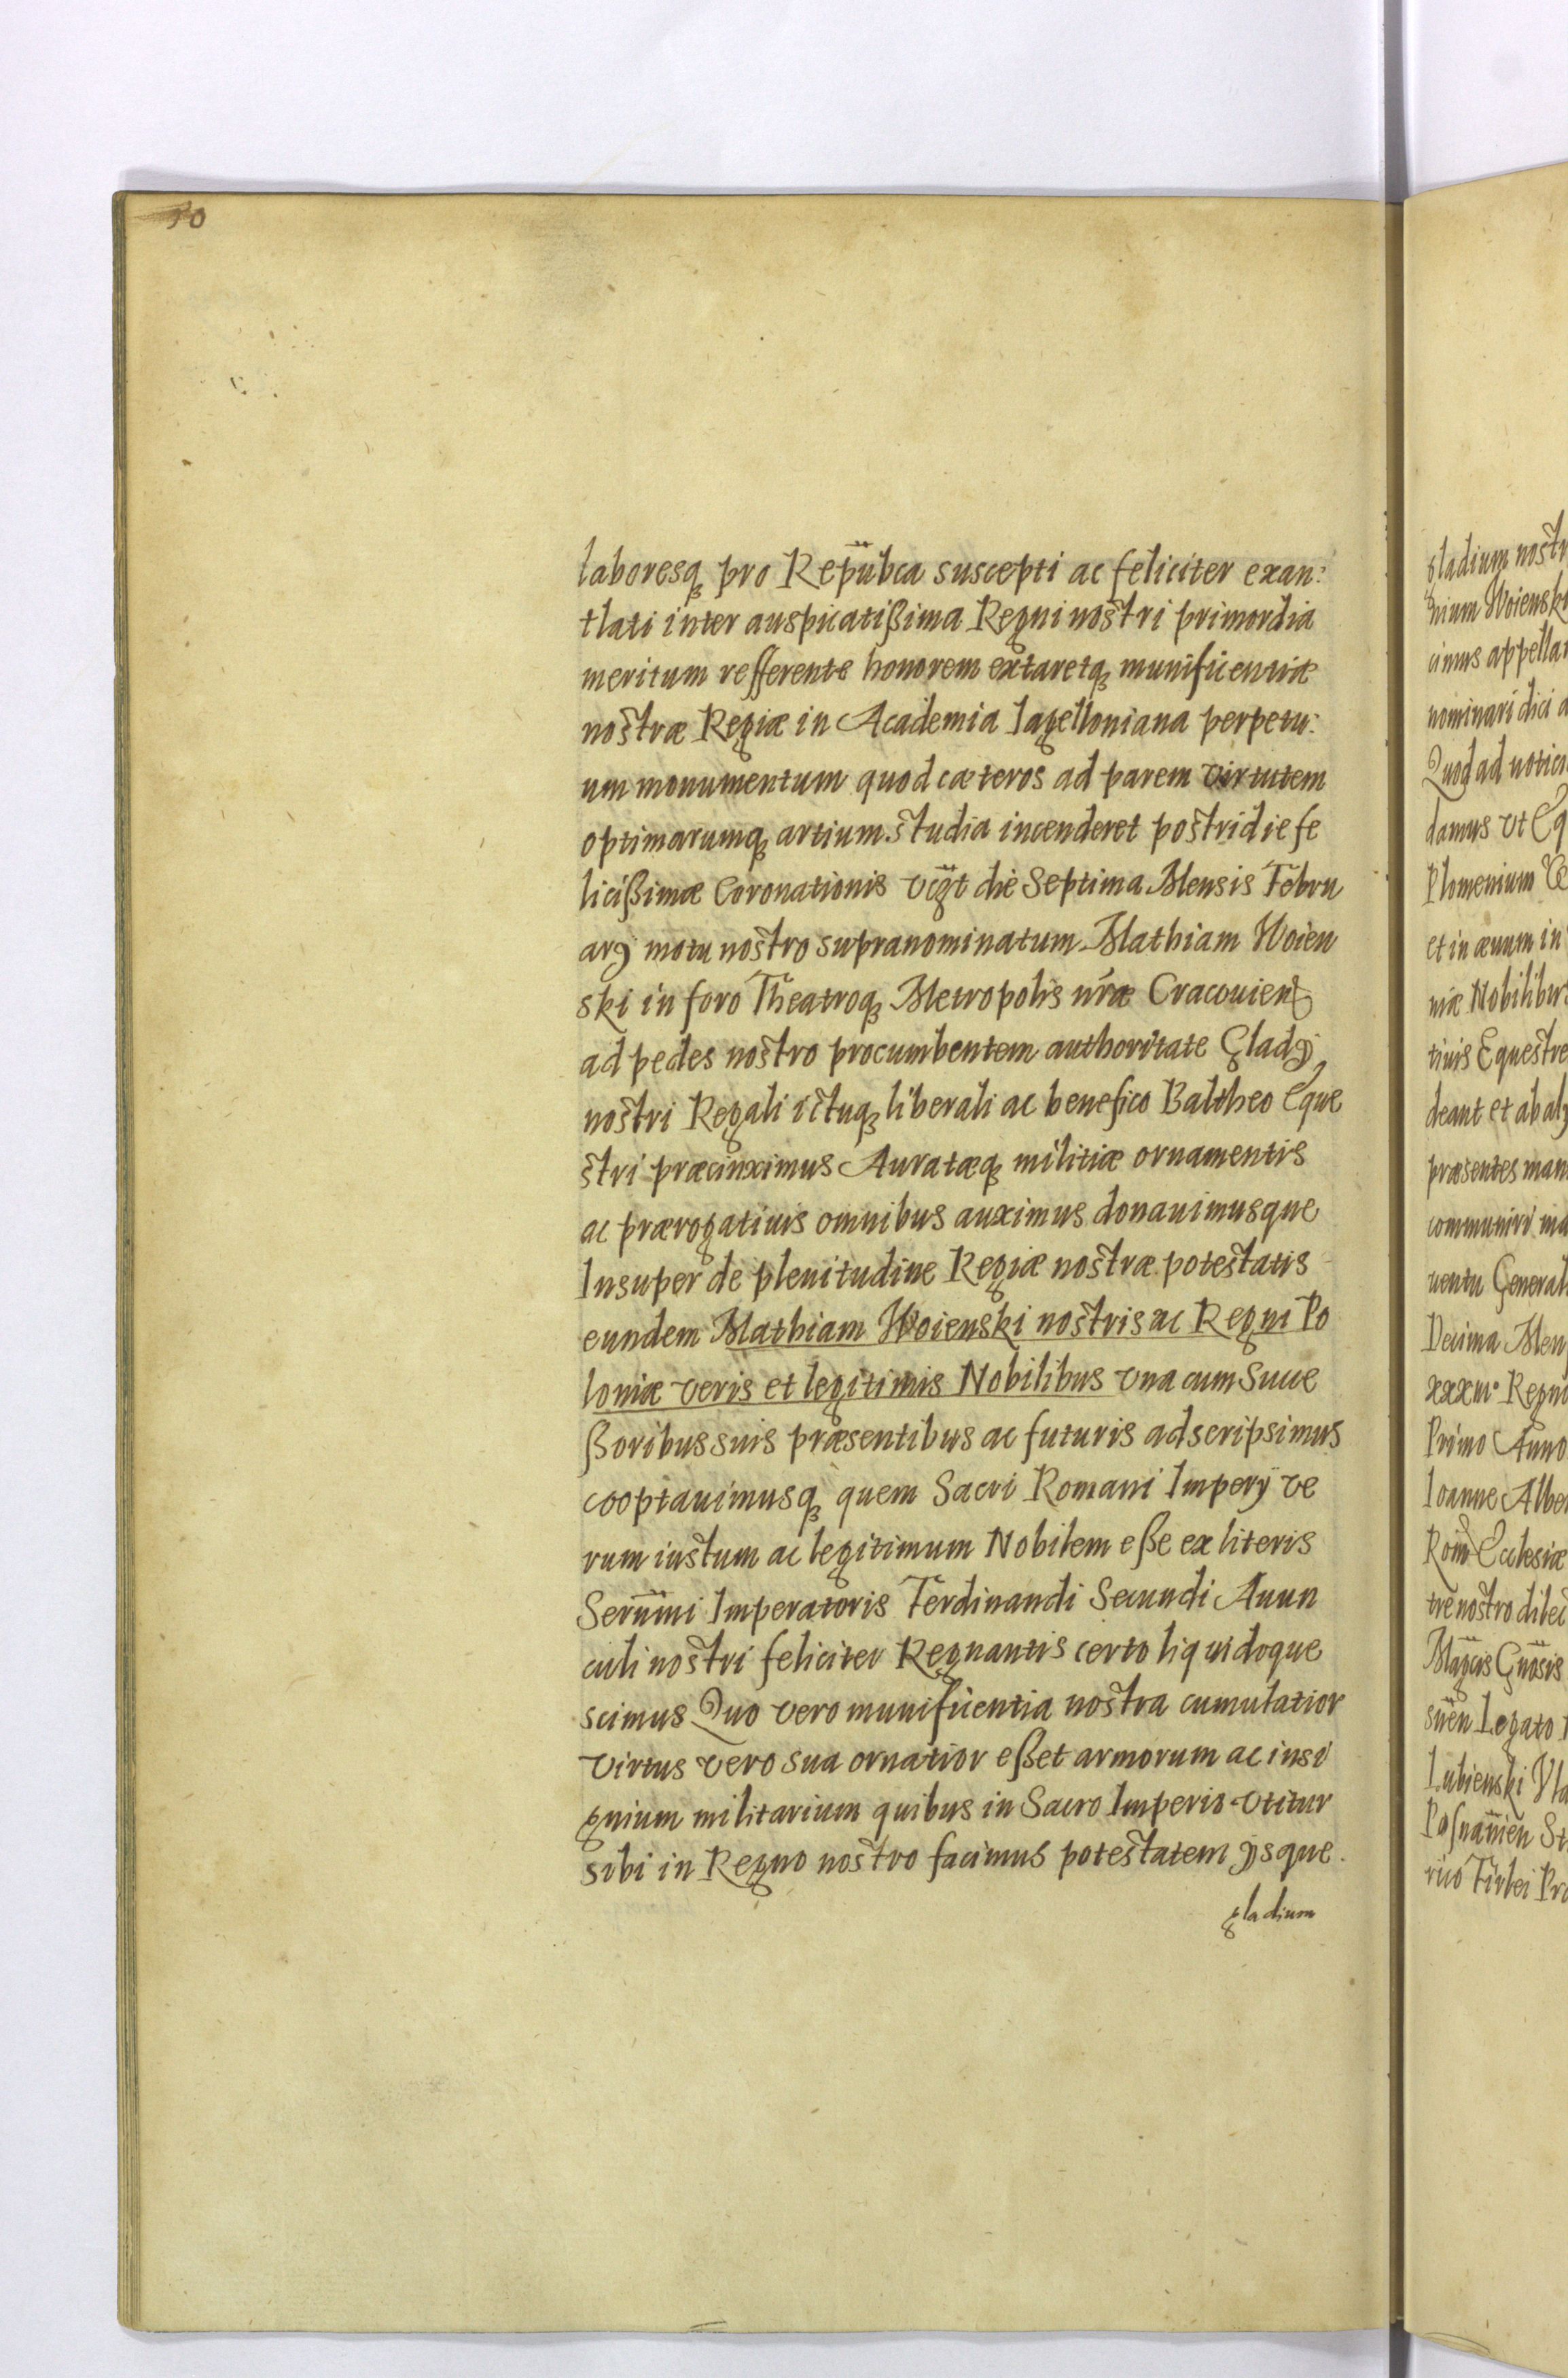 50
laboresq pro Repubca suscepti ac feliciter exan:
tlati inter auspicatißima Regni nostri primordia
meritum refferente honorem extaretq munificentiæ
nostræ Regiæ in Academia Iagelloniana perpetu:
um monumentum quod cæteros ad parem virtutem
optimarumq artium studia incenderet postridie fe
licißimæ Coronationis die Septima Mensis Febru
arÿ motu nostro supranominatum Mathiam Woien
ski in foro Theatroq Metropolis nræ Cracouien
ad pedes nostro procumbentem authoritate Gladÿ
nostri Regali ictuq liberali ac benefico Baltheo Eque
stri præcinximus Auratæq militiæ ornamentis
ac prærogatiuis omnibus auximus donauimusque
Insuper de plenitudine Regiæ nostræ potestatis
eundem Mathiam Woienski nostris ac Regni Po
loniæ veris et legitimis Nobilibus vna cum Succe
ßoribus suis præsentibus ac futuris adscripsimus
cooptauimusq quem Sacri Romani Imperÿ ve
rum iustum ac legitimum Nobilem eße ex literis
Serñmi Imperatoris Ferdinandi Secundi Auun
culi nostri feliciter Regnantis certo liquidoque
scimus Quo vero munificentia nostra cumulatior
virtus vero sua ornatior eßet armorum ac insi
gnium militarium quibus in Sacro Imperio vtitur
sibi in Regno nostro facimus potestatem ÿsque
gladium
gladium nostr
nium Woiensk
cimus appellar
nominari dici a
Quod ad notici
damus vt Eq
Plomenium
et in æuum in
niæ Nobilibus
tiuis Equestre
deant et ab alÿ
præsentes man
communiri ma
uentu General
Decima Men
xxxiii° Regno
Primo Anno
Ioanne Alber
Rom Ecclesiæ
tre nostro dilec
Mãgcis Gñosis
sñen Legato
Lubienski Vla
Posnañien St
rico Firlei Pra